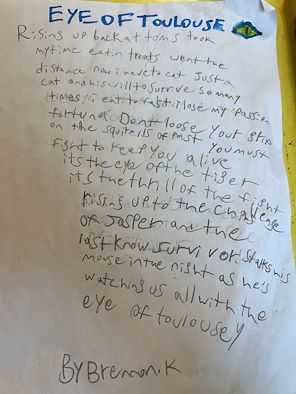 EYE OF TOULOUSE
Rising up back at toms took
my time eatin treats went the
distance now i have to eat Just a
cat and his will to survive so many
times i eat to fast i lose my passion
for tuna Dont loose your grip
on the squirells of past you must
fight to keep you alive
its the eye of the tiger
its the thrill of the fight
Rising up to the challenge
of Jasper and the
last know survivor stalks his
mouse in the night as he's
watching us all with the
eye of toulousey
By Bremon.K